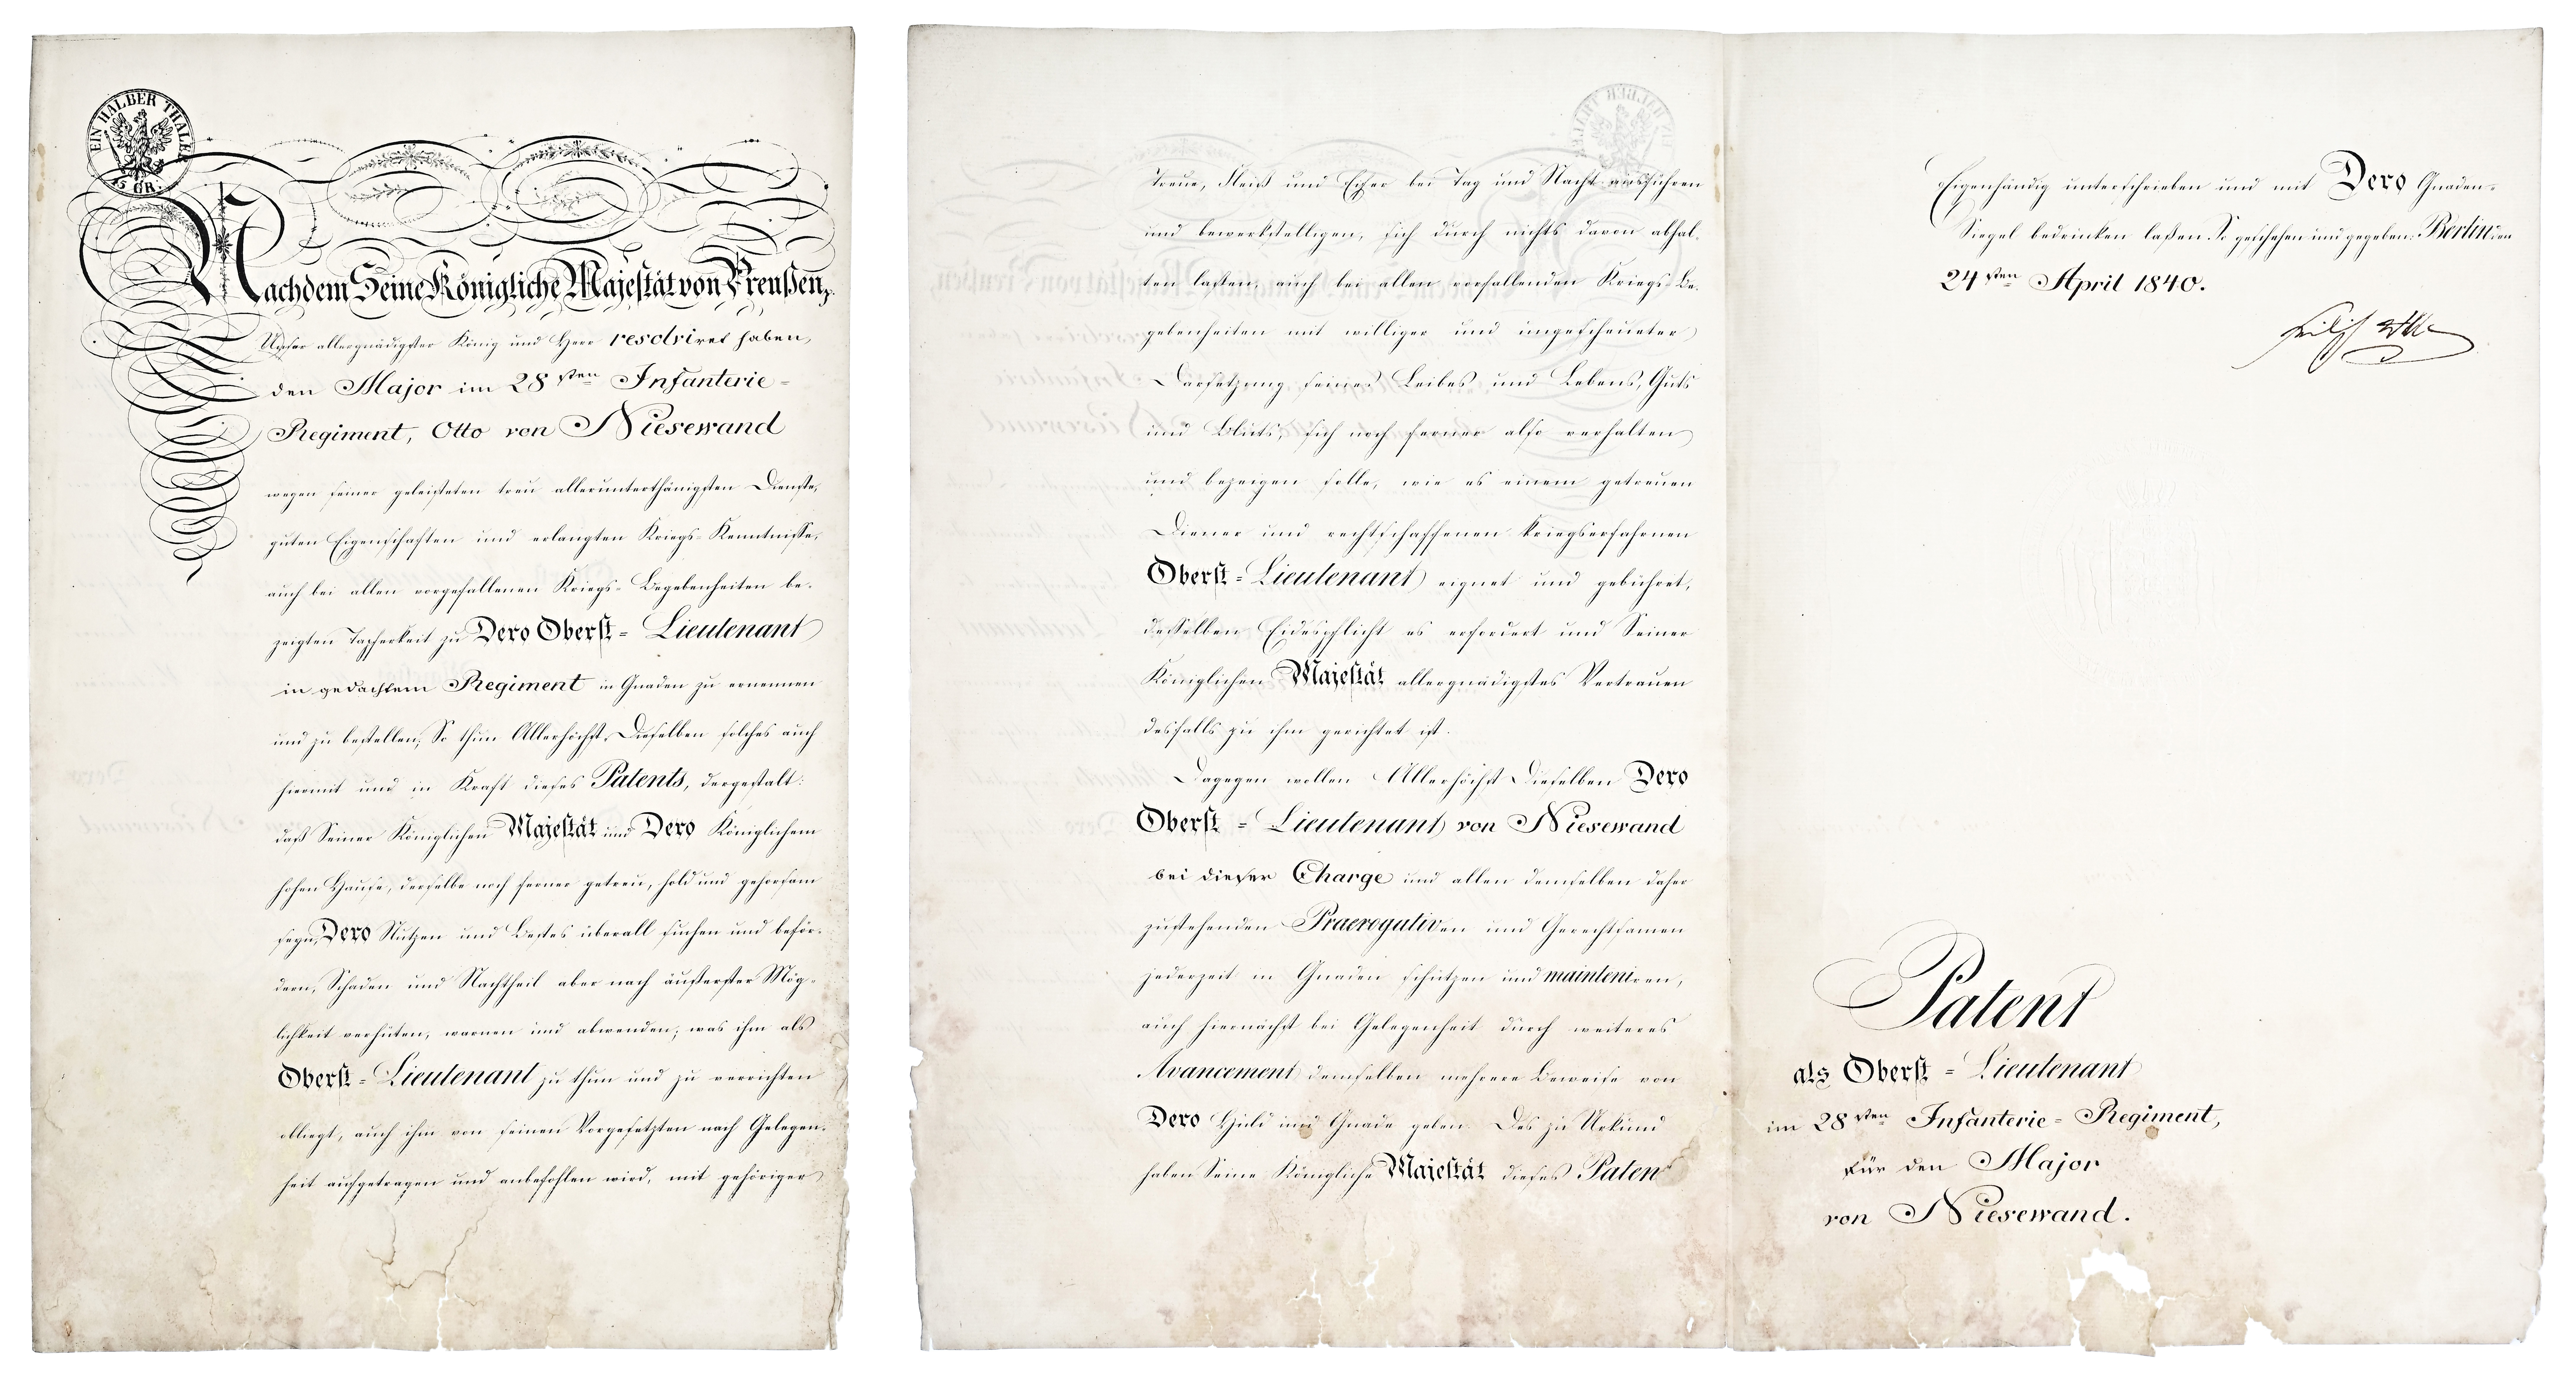 EIN HALBER THALER
15 GR:
Nachdem Seine Königliche Majestät von Preußen,
Unser allergnädigster König und Herr resolviret haben,
den Major im 28sten Infanterie-
Regiment, Otto von Niesewand
wegen seiner geleisteten treu allerunterthänigsten Dienste,
guten Eigenschaften und erlangten Kriegs-Kenntnisse,
auch bei allen vorgefallenen Kriegs-Begebenheiten be-
zeigten Tapferkeit zu Dero Oberst-Lieutenant
in gedachtem Regiment in Gnaden zu ernennen
und zu bestellen; So thun Allerhöchst Dieselben solches auch
hiermit und in Kraft dieses Patents, dergestalt:
daß Seiner Königlichen Majestät und Dero Königlichem
hohen Hause, derselbe noch ferner getreu, hold und gehorsam
seyn, Dero Nutzen und Bestes überall suchen und beför-
dern, Schaden und Nachtheil aber nach äußerster Mög-
lichkeit verhüten, warnen und abwenden; was ihm als
Oberst-Lieutenant zu thun und zu verrichten
obliegt, auch ihm von seinen Vorgesetzten nach Gelegen-
heit aufgetragen und anbefohlen wird, mit gehöriger
Treue, Fleiß und Eifer bei Tag und Nacht ausführen
und bewerkstelligen, sich durch nichts davon abhal-
ten lassen, auch bei allen vorfallenden Kriegs-Be-
gebenheiten mit williger und ungescheueter
Darsetzung seines Leibes und Lebens, Guts
und Bluts, sich noch ferner also verhalten
und bezeigen solle, wie es einem getreuen
Diener und rechtschaffenen kriegserfahrnen
Oberst-Lieutenant eignet und gebühret,
desselben Eidespflicht es erfordert und Seiner
Königlichen Majestät allergnädigstes Vertrauen
desfalls zu ihm gerichtet ist.
Dagegen wollen Allerhöchst Dieselben Dero
Oberst-Lieutenant von Niesewand
bei dieser Charge und allen demselben daher
zustehenden Praerogativen und Gerechtsamen
jederzeit in Gnaden schützen und mainteniren,
auch hiernächst bei Gelegenheit durch weiteres
Avancement demselben mehrere Beweise von
Dero Huld und Gnade geben. Des zu Urkund
haben Seine Königliche Majestät dieses Patent
Eigenhändig unterschrieben und mit Dero Gnaden-
Siegel bedrucken laßen. So geschehen und gegeben: Berlin den
24sten April 1840.
Patent
als Oberst-Lieutenant
im 28sten Infanterie-Regiment,
für den Major
von Niesewand.